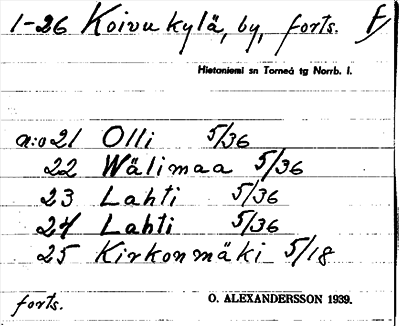 1-26 Koivukylä, by, forts. F/
Hietaniemi sn Torneå tg Norrb. l.
n:o 21 Olli 5/36
22 Wälimaa 5/36
23 Lahti 5/36
24 Lahti 5/36
25 Kirkonmäki 5/18
forts.
O. ALEXANDERSSON 1939.